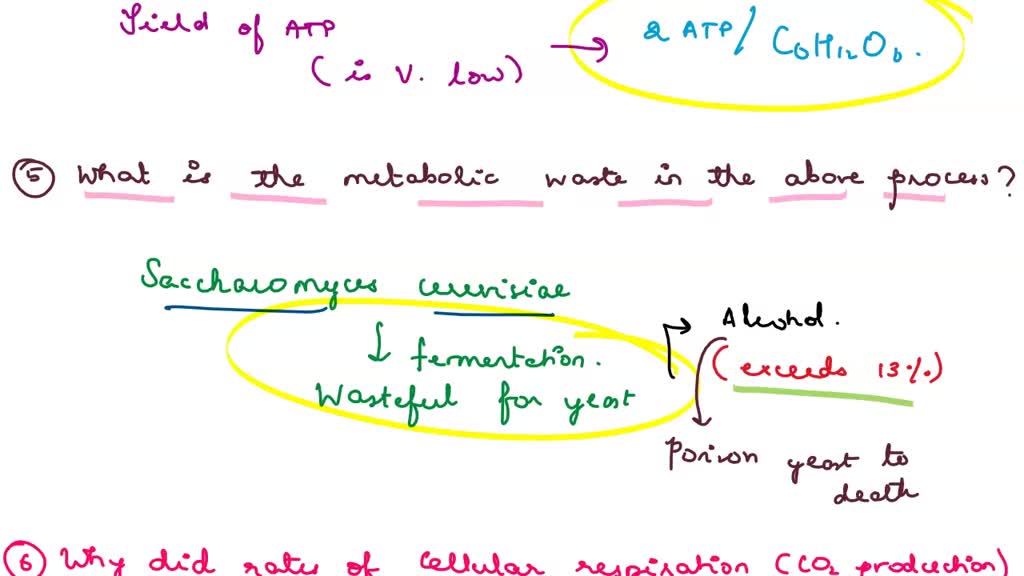 Yield of ATP
(is v. low) → 2 ATP/ C6H12O6.
5 What is the metabolic waste in the above process?
Saccharomyces cerevisiae
↓ fermentation.
Wasteful for yeast
→ Alcohol.
(exceeds 13%)
Poison yeast to
death
6 Why did rates of cellular respiration (CO2 production)